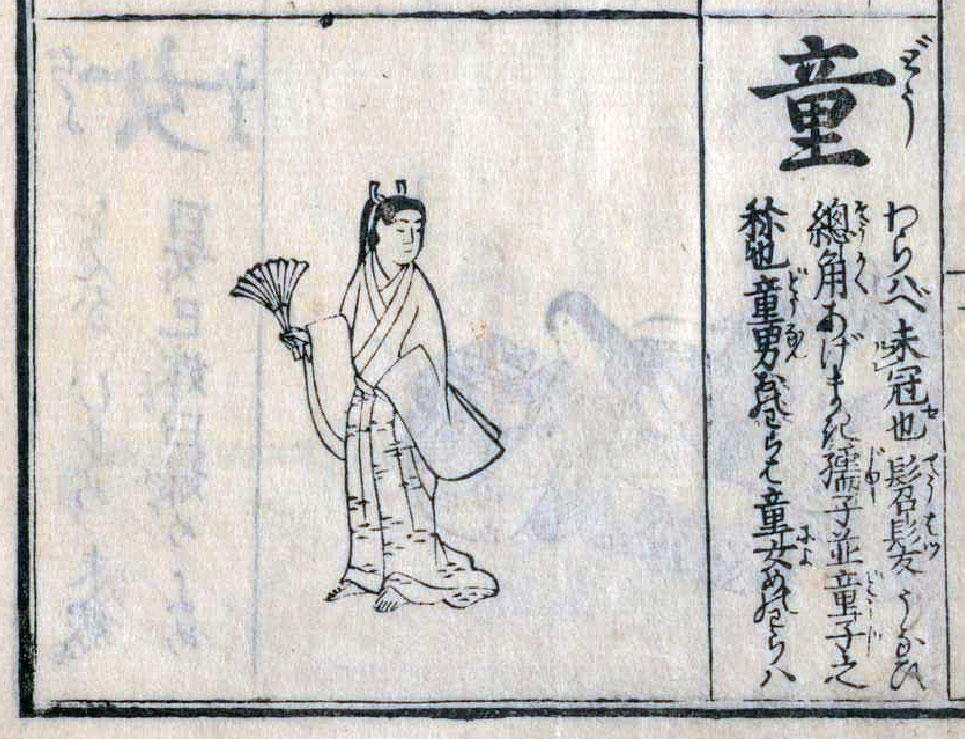 童 どう
わらハべ未冠也髫髪うなひ
總角あげまき孺子並童子之
称也童男おのわらハ童女めのわらハ